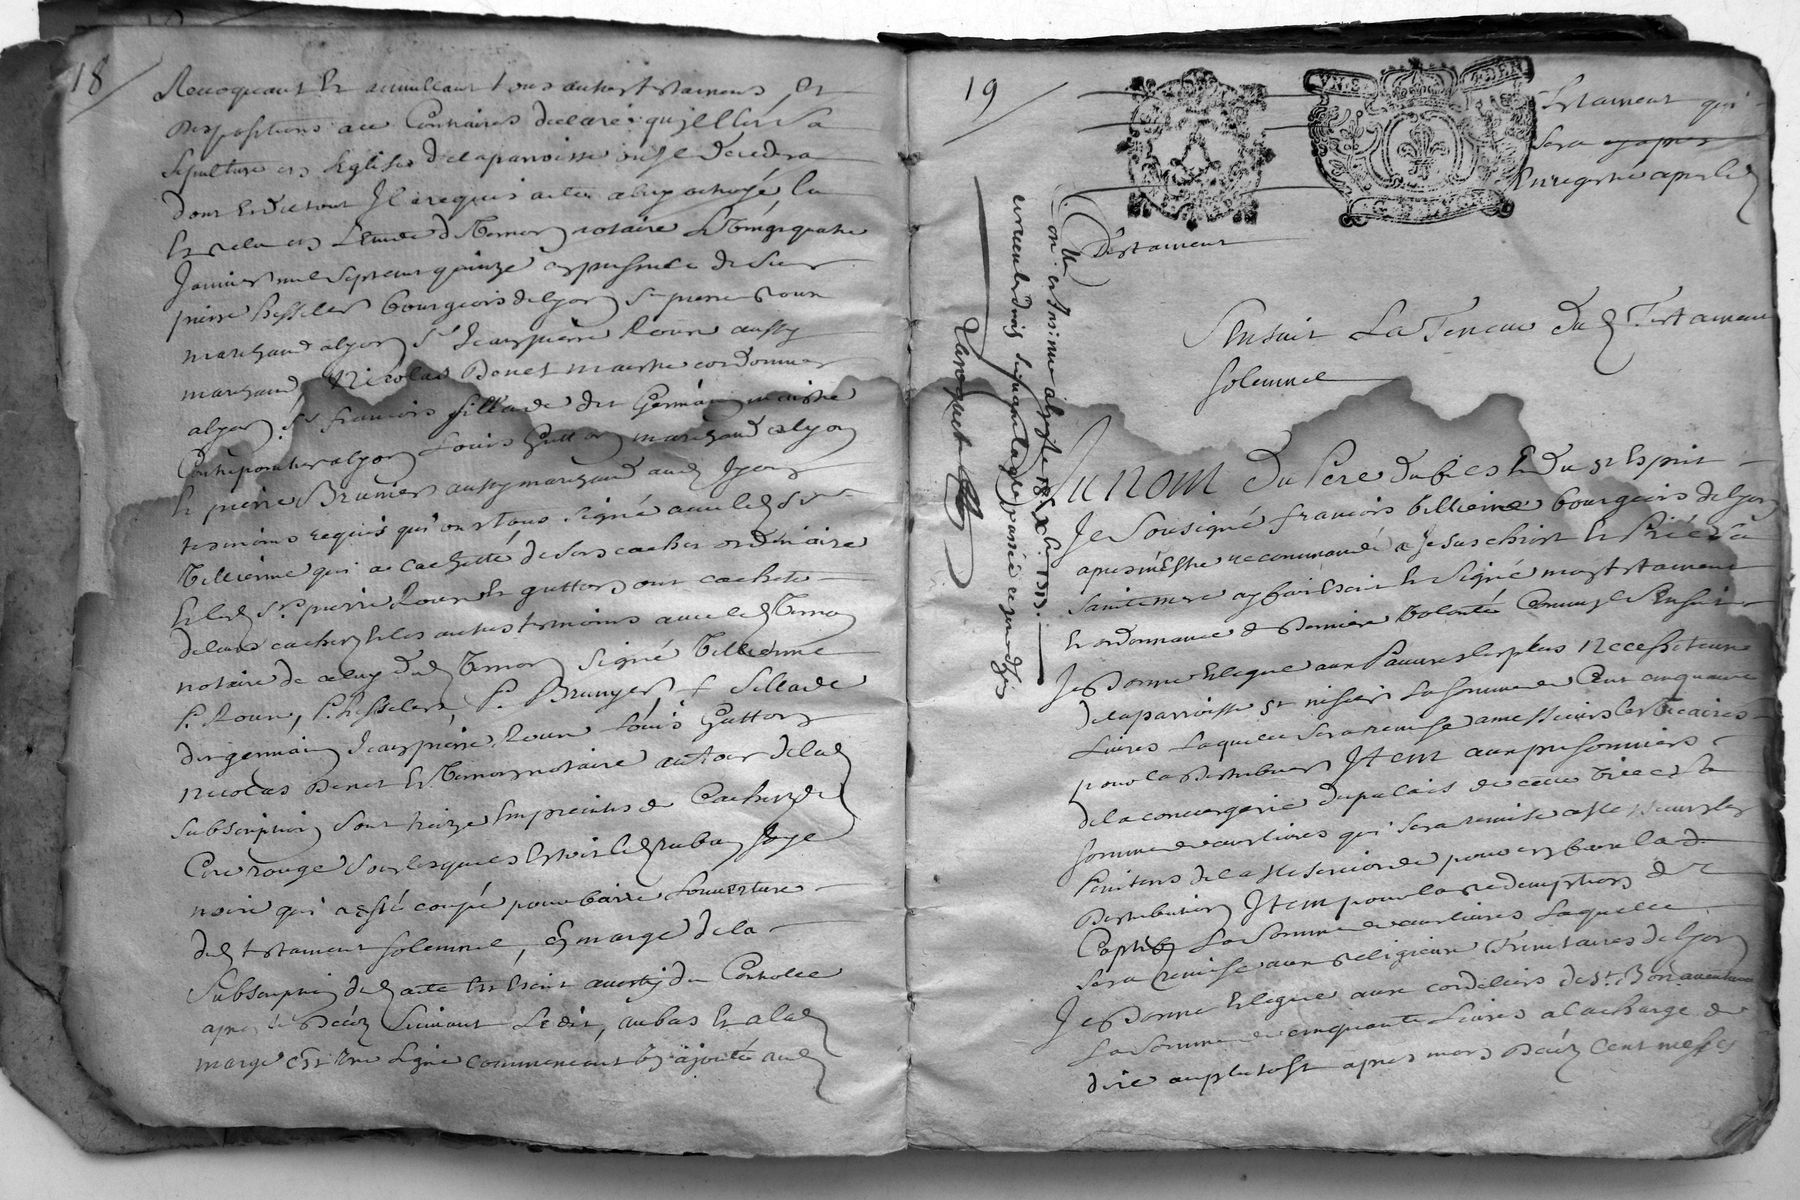 18
Revoquant Et annullant tous autres testamens, Et
dispositions au Contraires declare quil Elit Sa
sepulture en leglise de la parroisse ou Il decedera
dont Et du tout Il a requis acte a luy octroyé leu
Et releu en l'etude de Ternon notaire le vingt quatre
Janvier mil sept cent quinze en presence de Sieur
pierre Bourgeois de lyon Sr pierre Roux
marchand a lyon Sr Jean pierre Roux aussy
marchand, Nicolas Benet maistre cordonnier
a lyon, Sr francois fillade dit Germain maistre
a lyon Louis Gutton marchand a lyon
Et pierre Brunier aussy marchand aud lyon
tesmoins requis qui ont tous signé avec led Sr
Tellienne qui a cachetté de son cachet ordinaire
Et les Srs pierre Roux Et gutton ont cacheté
de leur cachet Et les autres tesmoins avec led Ternon
notaire de celuy dud Ternon signé Tellienne
P. Roux, P. P. Brunyer f fillade
dit germain Jean pierre Roux Louis Gutton
Nicolas Benet Et Ternon notaire autour de lad
subscription sont treize Empreintes de Cachet de
Cire rouge sous lesquels Estoit led ruban soye
noire qui a esté coupé pour faire L'ouverture
dud testament solemnel, En marge de la
Subscription dud acte Est Escrit avertij du Controlle
apres le Décéz Suivant L'Edit, au bas Et a lad
marge est Une Ligne commencant Et ajoutée aud
19
Testament qui
sera cy apres
Enregistré apres led
Testament
insinué a lyon le 18 Xbre 1717
Ensuit La Teneur dud Testament
Solemnel
Au nom Du Pere du fils Et du st Esprit
Je Sousigné francois tellienne bourgeois de lyon
apres mestre recommandé a Jesus christ Et Prié sa
sainte mere ay fait Escrit Et signé mon testament
Et ordonnance de derniere Volonté Comme Il s'ensuit
Je Donne Et legue aux Pauvres les plus Necessiteux
de la parroisse st nisier La somme de Cent cinquante
Livres Laquelle sera remise a messieurs les Vicaires
pour la distribuer Item aux prisonniers
de la conciergerie du palais de cette Ville la
somme de cent livres qui sera remise a Messieurs les
Penitens de la Misericorde pour en faire la d.
Distribution Item pour la redemption de
Captifs La somme de cent livres Laquelle
sera remise aux religieux Trinitaires de lyon
Je Donne Et legue aux cordeliers de St. Bonaventure
La somme de cinquante Livres a la charge de
dire au plutost apres mon Décéz Cent messes